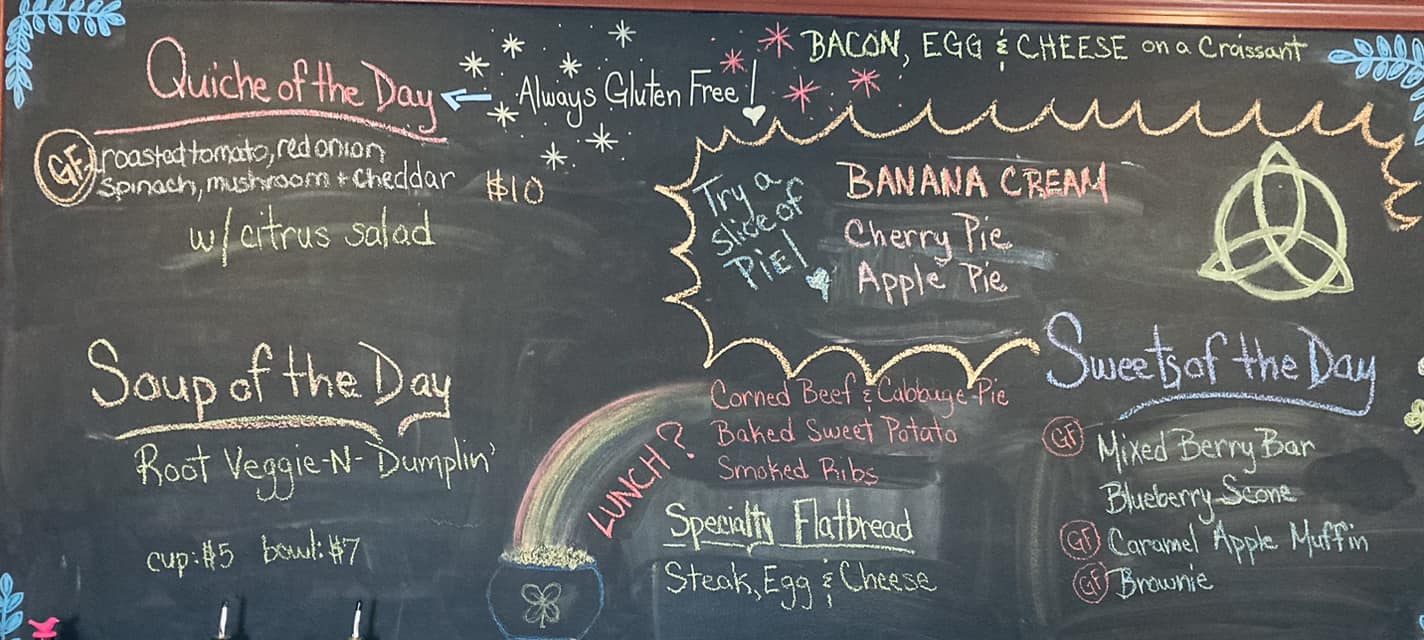 Quiche of the Day
Always Gluten Free!
GF roasted tomato, red onion
Spinach, mushroom + Cheddar $10
w/ citrus salad
BACON, EGG & CHEESE on a Croissant
Try a
slice of
PiE!
BANANA CREAM
Cherry Pie
Apple Pie
Soup of the Day
Root Veggie-N-Dumplin'
cup: $5 bowl: $7
LUNCH?
Corned Beef & Cabbage Pie
Baked Sweet Potato
Smoked Ribs
Specialty Flatbread
Steak, Egg & Cheese
Sweets of the Day
GF Mixed Berry Bar
Blueberry Scone
GF Caramel Apple Muffin
GF Brownie